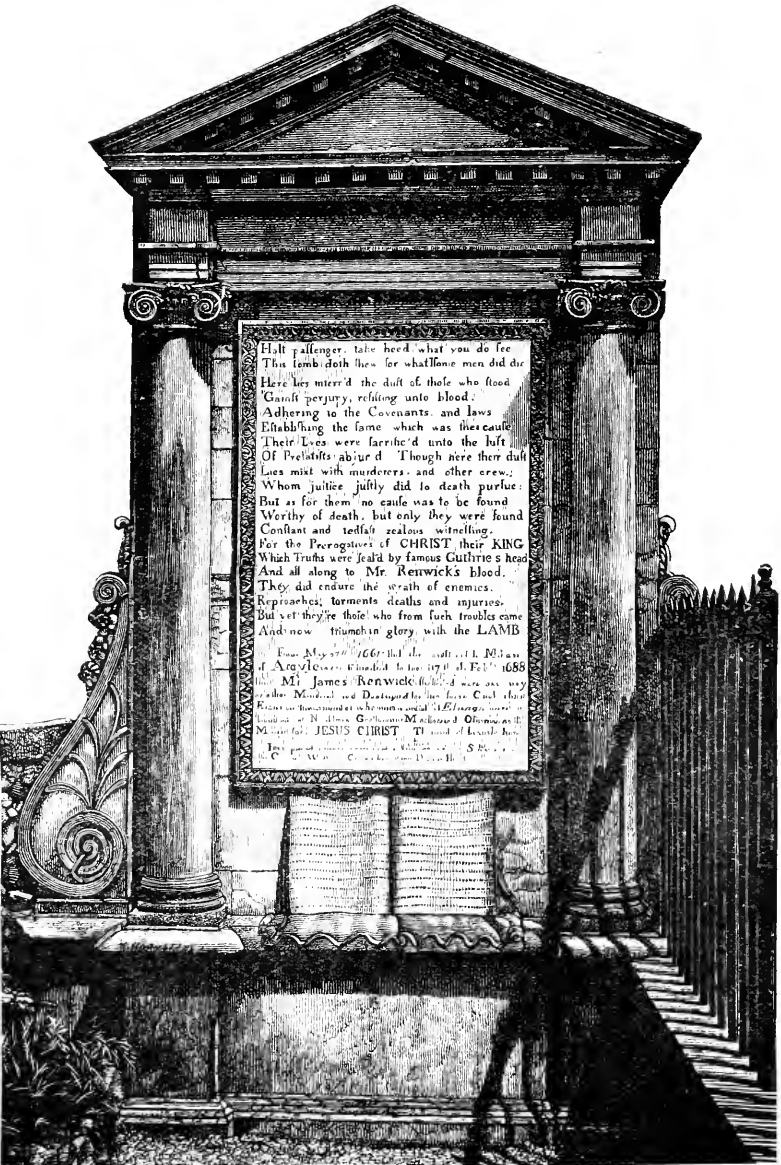 Halt paſſenger, take heed what you do ſee
This tomb doth ſhew for what ſome men did die
Here lies interr'd the duſt of thoſe who ſtood
'Gainſt perjury, reſiſting unto blood;
Adhering to the Covenants, and laws
Eſtabliſhing the ſame which was their cauſe
Their Lives were ſacrific'd unto the luſt
Of Prelatiſts abjur'd Though here their duſt
Lies mixt with murderers, and other crew,
Whom juſtice juſtly did to death purſue:
But as for them no cauſe was to be found
Worthy of death, but only they were found
Conſtant and ſtedfaſt zealous witneſſing,
For the Prerogatives of CHRIST their KING
Which Truths were ſeal'd by famous Guthrie's head
And all along to Mr. Renwick's blood.
They did endure the wrath of enemies,
Reproaches, torments deaths and injuries,
But yet they're thoſe who from ſuch troubles came
And now triumph in glory with the LAMB
From May 27th 1661 that the
of Argyle to the 17th of Feby 1688
that Mr James Renwick were one way
or other Murdered and Deſtroyed for the ſame Cauſe

Noblemen Gentlemen Miniſters and Others
JESUS CHRIST